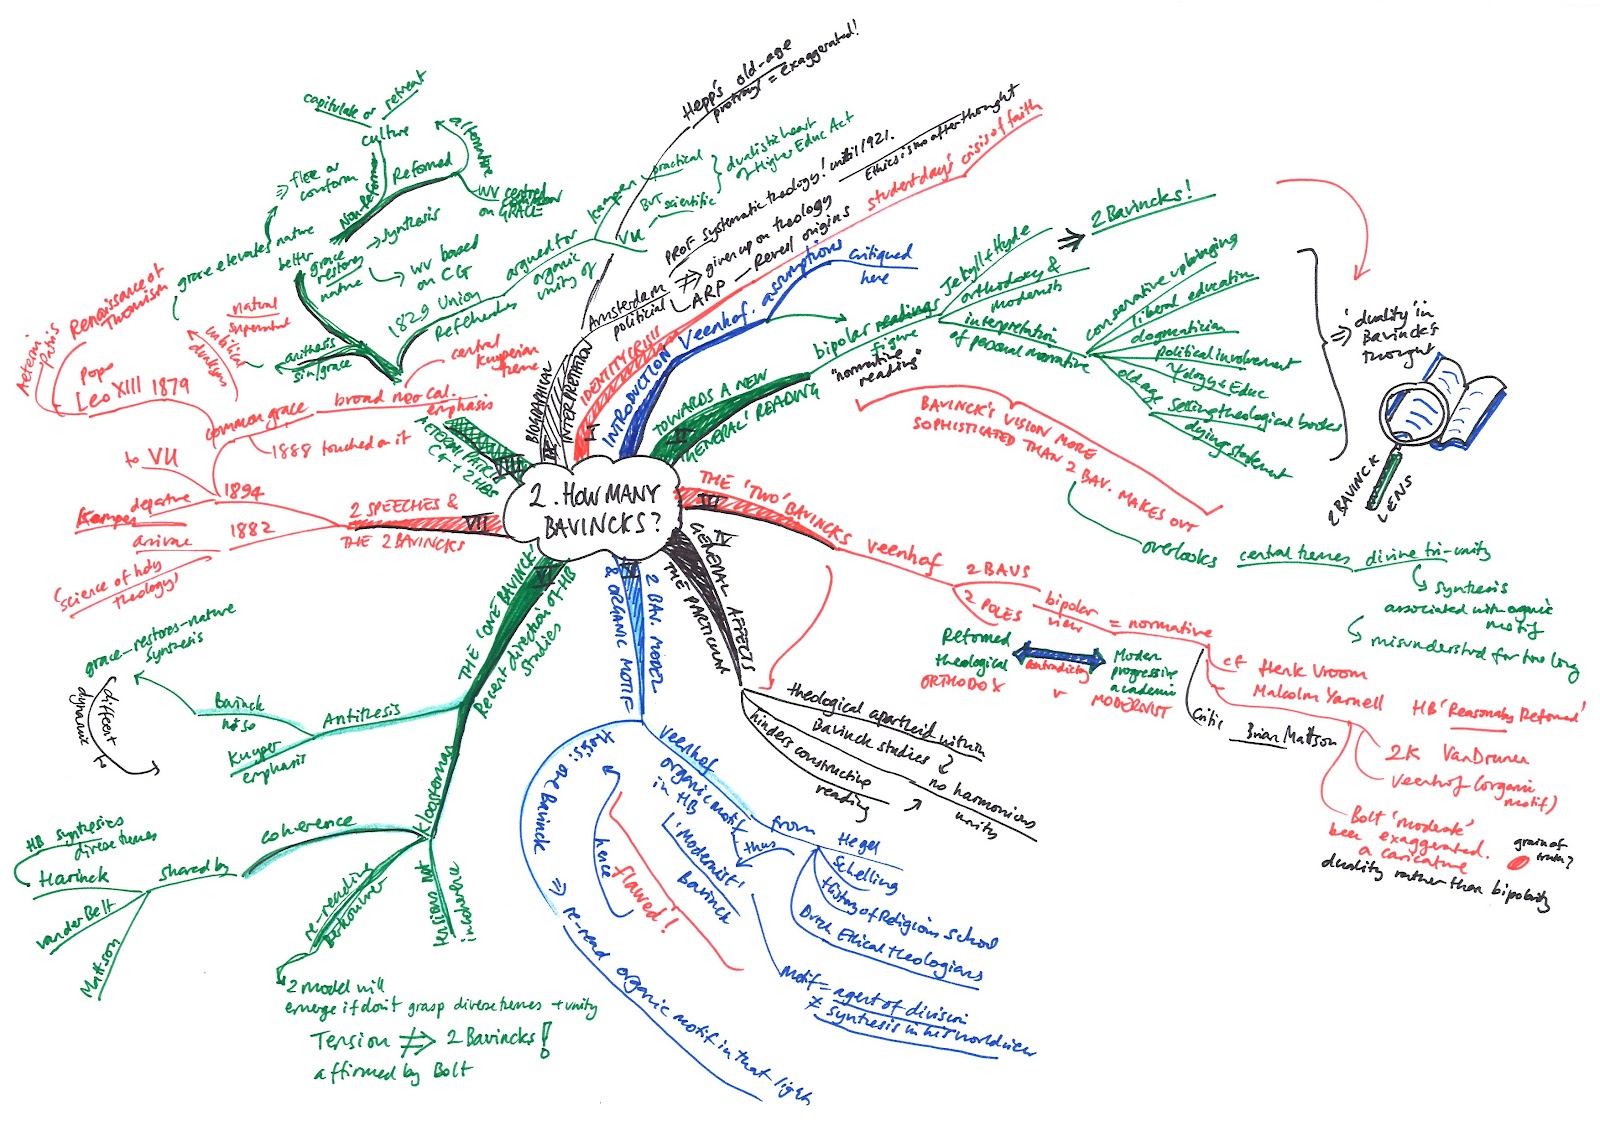 2. HOW MANY
BAVINCKS?
INTRODUCTION
Veenhof. assumptions
critiqued
here
TOWARDS A NEW
GENERAL' READING
bipolar readings
figure
"normative
reading"
Jekyll & Hyde
orthodoxy &
modernity
⇒ 2 Bavincks!
interpretation
of personal narrative
conservative upbringing
liberal education
dogmatician
political involvement
Ψology & Educ
old age
Selling theological books
dying statement
⇒ 'duality' in
Bavinck's
thought
2 BAVINCK
LENS
BAVINCK'S VISION MORE
SOPHISTICATED THAN 2 BAV. MAKES OUT
overlooks central themes divine tri-unity
synthesis
associated with organic
motif
misunderstood for too long
THE 'TWO' BAVINCKS
VI
veenhof
2 BAVS
2 POLES
bipolar
view
= normative
Reformed
theological
ORTHODOX
contradictory
v
Modern
progressive
academic
MODERNIST
cf Henk Vroom
Malcolm Yarnell
HB 'Reasonably Reformed'
Critic Brian Mattson
2K VanDrunen
Veenhof (organic
motif)
Bolt 'moderate'
been exaggerated.
a caricature
grain of
truth?
duality rather than bipolarity
IV
GENERAL AFFECTS
THE PARTICULAR
theological apartheid within
Bavinck studies
hinders constructive
reading
= no harmonious
unity
2 BAV. MODEL
& ORGANIC MOTIF
veenhof
organic motif
in HB
from
Hegel
Schelling
History of Religions School
Dutch Ethical theologians
thus
'Modernist'
Bavinck
motif = agent of division
≠ synthesis in his worldview
flawed!
here
thesis: one Bavinck ⇒ re-read organic motif in that light
THE (ONE) BAVINCK:
Recent direction of HB
studies
Antithesis
Bavinck
not so
Kuyper
emphasis
grace-restores-nature
synthesis
different
dynamic
Kloosterman
coherence
shared by
HB synthesises
diverse themes
Harinck
van der Belt
Mattson
re-reading
Berkouwer
tension not
incoherence
2 model will
emerge if don't grasp diverse themes + unity
Tension ≠> 2 Bavincks!
affirmed by Bolt
VII
2 SPEECHES &
THE 2 BAVINCKS
1894
to VU
departure
Kampen
1882
arrival
(science of holy
theology)
VIII
AETERNI PATRIS
CG + 2 HBS
common grace
1888 touched on it
broad neo Cal.
emphasis
central
Kuyperian
theme
Pope
Leo XIII 1879
Aeterni
Patris
Renaissance of
Thomism
natural
supernatural
unbiblical
dualism
antithesis
sin/grace
grace elevates nature
better
grace
restores
nature
→ synthesis
→ WV based
on CG
⇒ flee or
conform
Non-Reformed
Reformed
culture
capitulate or retreat
alternative
WV centred
on GRACE
1829 Union
Ref Churches
argued for
organic
unity of
Kampen
practical
BUT scientific
VU
dualistic heart
of Higher Educ Act
BIOGRAPHICAL
INTERPRETATION
Hepp's old-age
portrayal = exaggerated!
Amsterdam
political
PROF systematic theology! until 1921.
Ethics is no afterthought
≠> given up on theology
ARP — Reveil origins
IDENTITY CRISIS
student days' crisis of faith